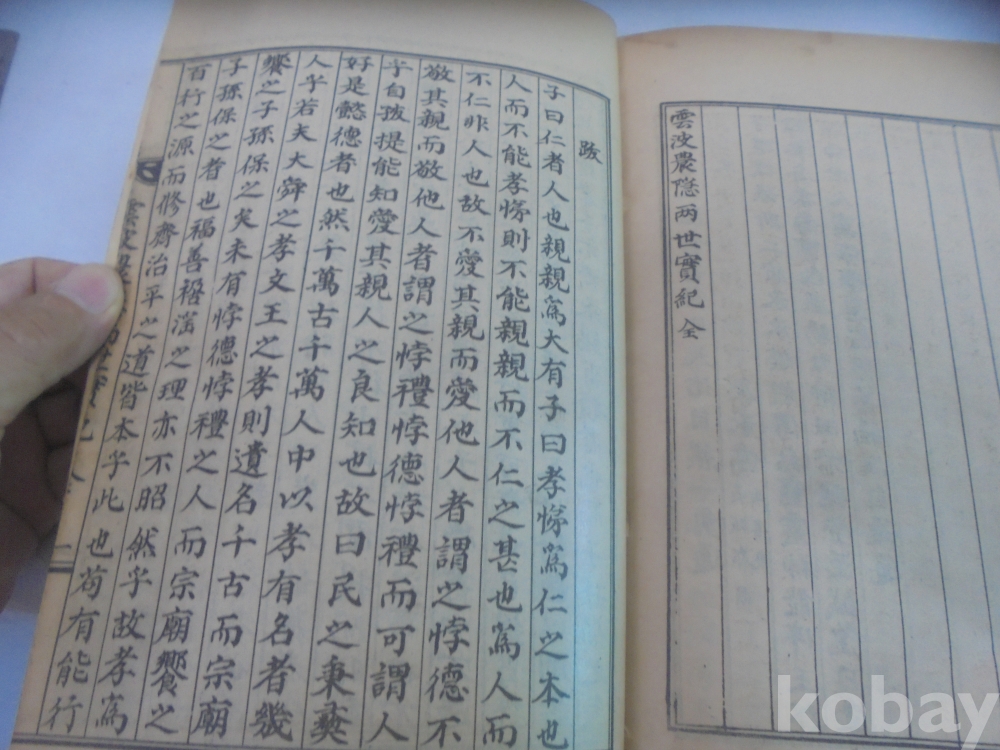 雲波農隠两世實紀 全
跋
子曰仁者人也親親爲大有子曰孝悌爲仁之本也
人而不能孝悌則不能親親而不仁之甚也爲人而
不仁非人也故不愛其親而愛他人者謂之悖德不
敬其親而敬他人者謂之悖禮悖德悖禮而可謂人
乎自孩提能知愛其親人之良知也故曰民之秉彝
好是懿德者也然千萬古千萬人中以孝有名者幾
人乎若夫大舜之孝文王之孝則遺名千古而宗廟
饗之子孫保之矣未有悖德悖禮之人而宗廟饗之
子孫保之者也福善禍淫之理亦不昭然乎故孝爲
百行之源而修齊治平之道皆本乎此也苟有能行
kobay